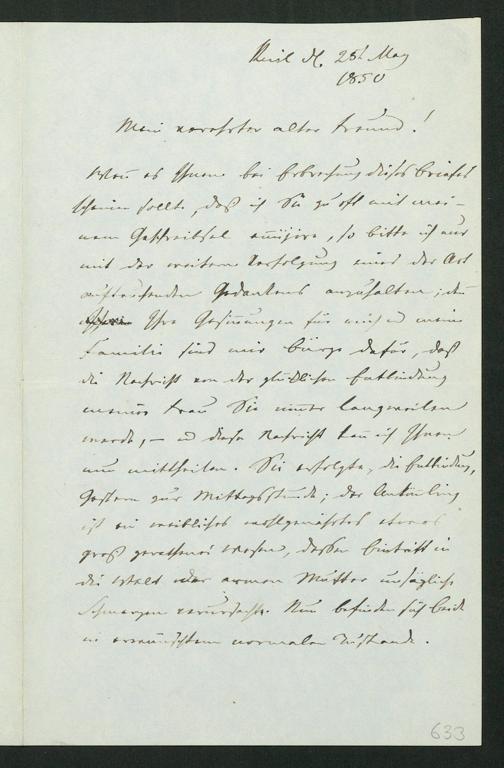 Kiel d. 28t May
1850
Mein verehrter alter Freund!
Wenn es Ihnen bei Erbrechung dieses Briefes
scheinen sollte, daß ich Sie zu oft mit mei-
nem Geschreibsel ennüjire, so bitte ich nur
mit der weitern Verfolgung eines der Art
auftauchenden Gedankens anzuhalten; denn
Ihre Gesinnungen für mich und meine
Familie sind mir Bürge dafür, daß
die Nachricht von der glücklichen Entbindung
meiner Frau Sie nicht langweilen
werde, – und diese Nachricht kann ich Ihnen
nun mittheilen. Sie erfolgte, die Entbindung,
Gestern zur Mittagsstunde; der Ankömling
ist ein weibliches wohlgenährtes etwas
groß gerathenes Wesen, dessen Eintritt in
die Welt der armen Mutter unsägliche
Schmerzen verursachte. Nun befinden sich beide
in erwünschtem normalen Zustande.
633